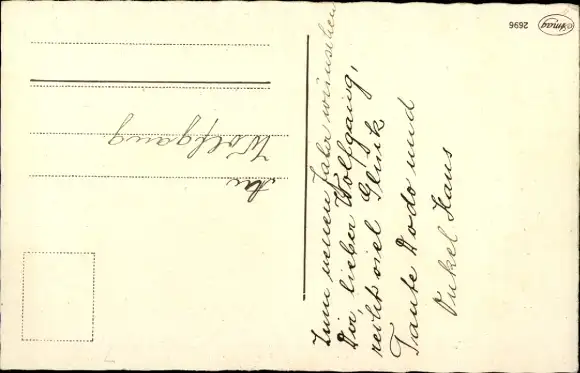 Zum neuen Jahr wünschen
Dir, lieber Wolfgang,
recht viel Glück
Tante Dodo und
Onkel Hans
An
Wolfgang
Amag
2696